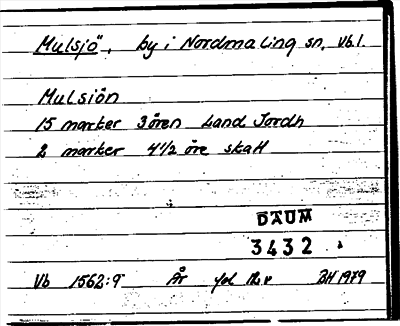 Mulsjö, by i Nordmaling sn, Vb.l.
Mulsiön
15 marker 3 ören Land Jordh
2 marker 4 1/2 öre skatt
DAUM
3432
Vb 1562:9 År fol v BH 1979